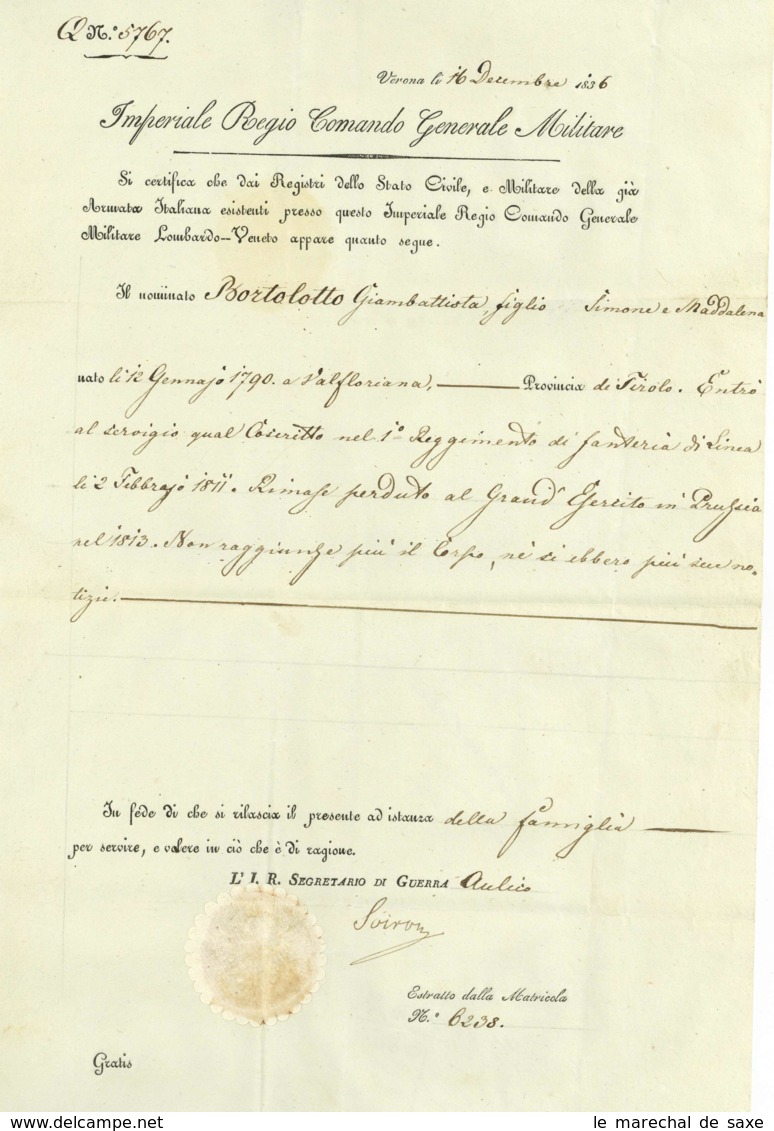 Q N.º 5767.
Verona li 16 Decembre 1836
Imperiale Regio Comando Generale Militare
Si certifica che dai Registri dello Stato Civile, e Militare della già
Armata Italiana esistenti presso questo Imperiale Regio Comando Generale
Militare Lombardo--Veneto appare quanto segue.
Il nominato Bortolotto Giambattista, figlio Simone e Maddalena
nato li 12 Gennajo 1790. a Valfloriana, Provincia di Tirolo. Entrò
al servigio qual Coscritto nel 1º Reggimento di fanteria di Linea
li 2 Febbrajo 1811. Rimase perduto al Grand' Esercito in Prussia
nel 1813. Non raggiunse più il Corpo, nè si ebbero più sue no-
tizie.
In fede di che si rilascia il presente ad istanza della famiglia
per servire, e valere in ciò che è di ragione.
L' I. R. SEGRETARIO DI GUERRA Aulico
Estratto dalla Matricola
N.º 6238.
Gratis
le marechal de saxe